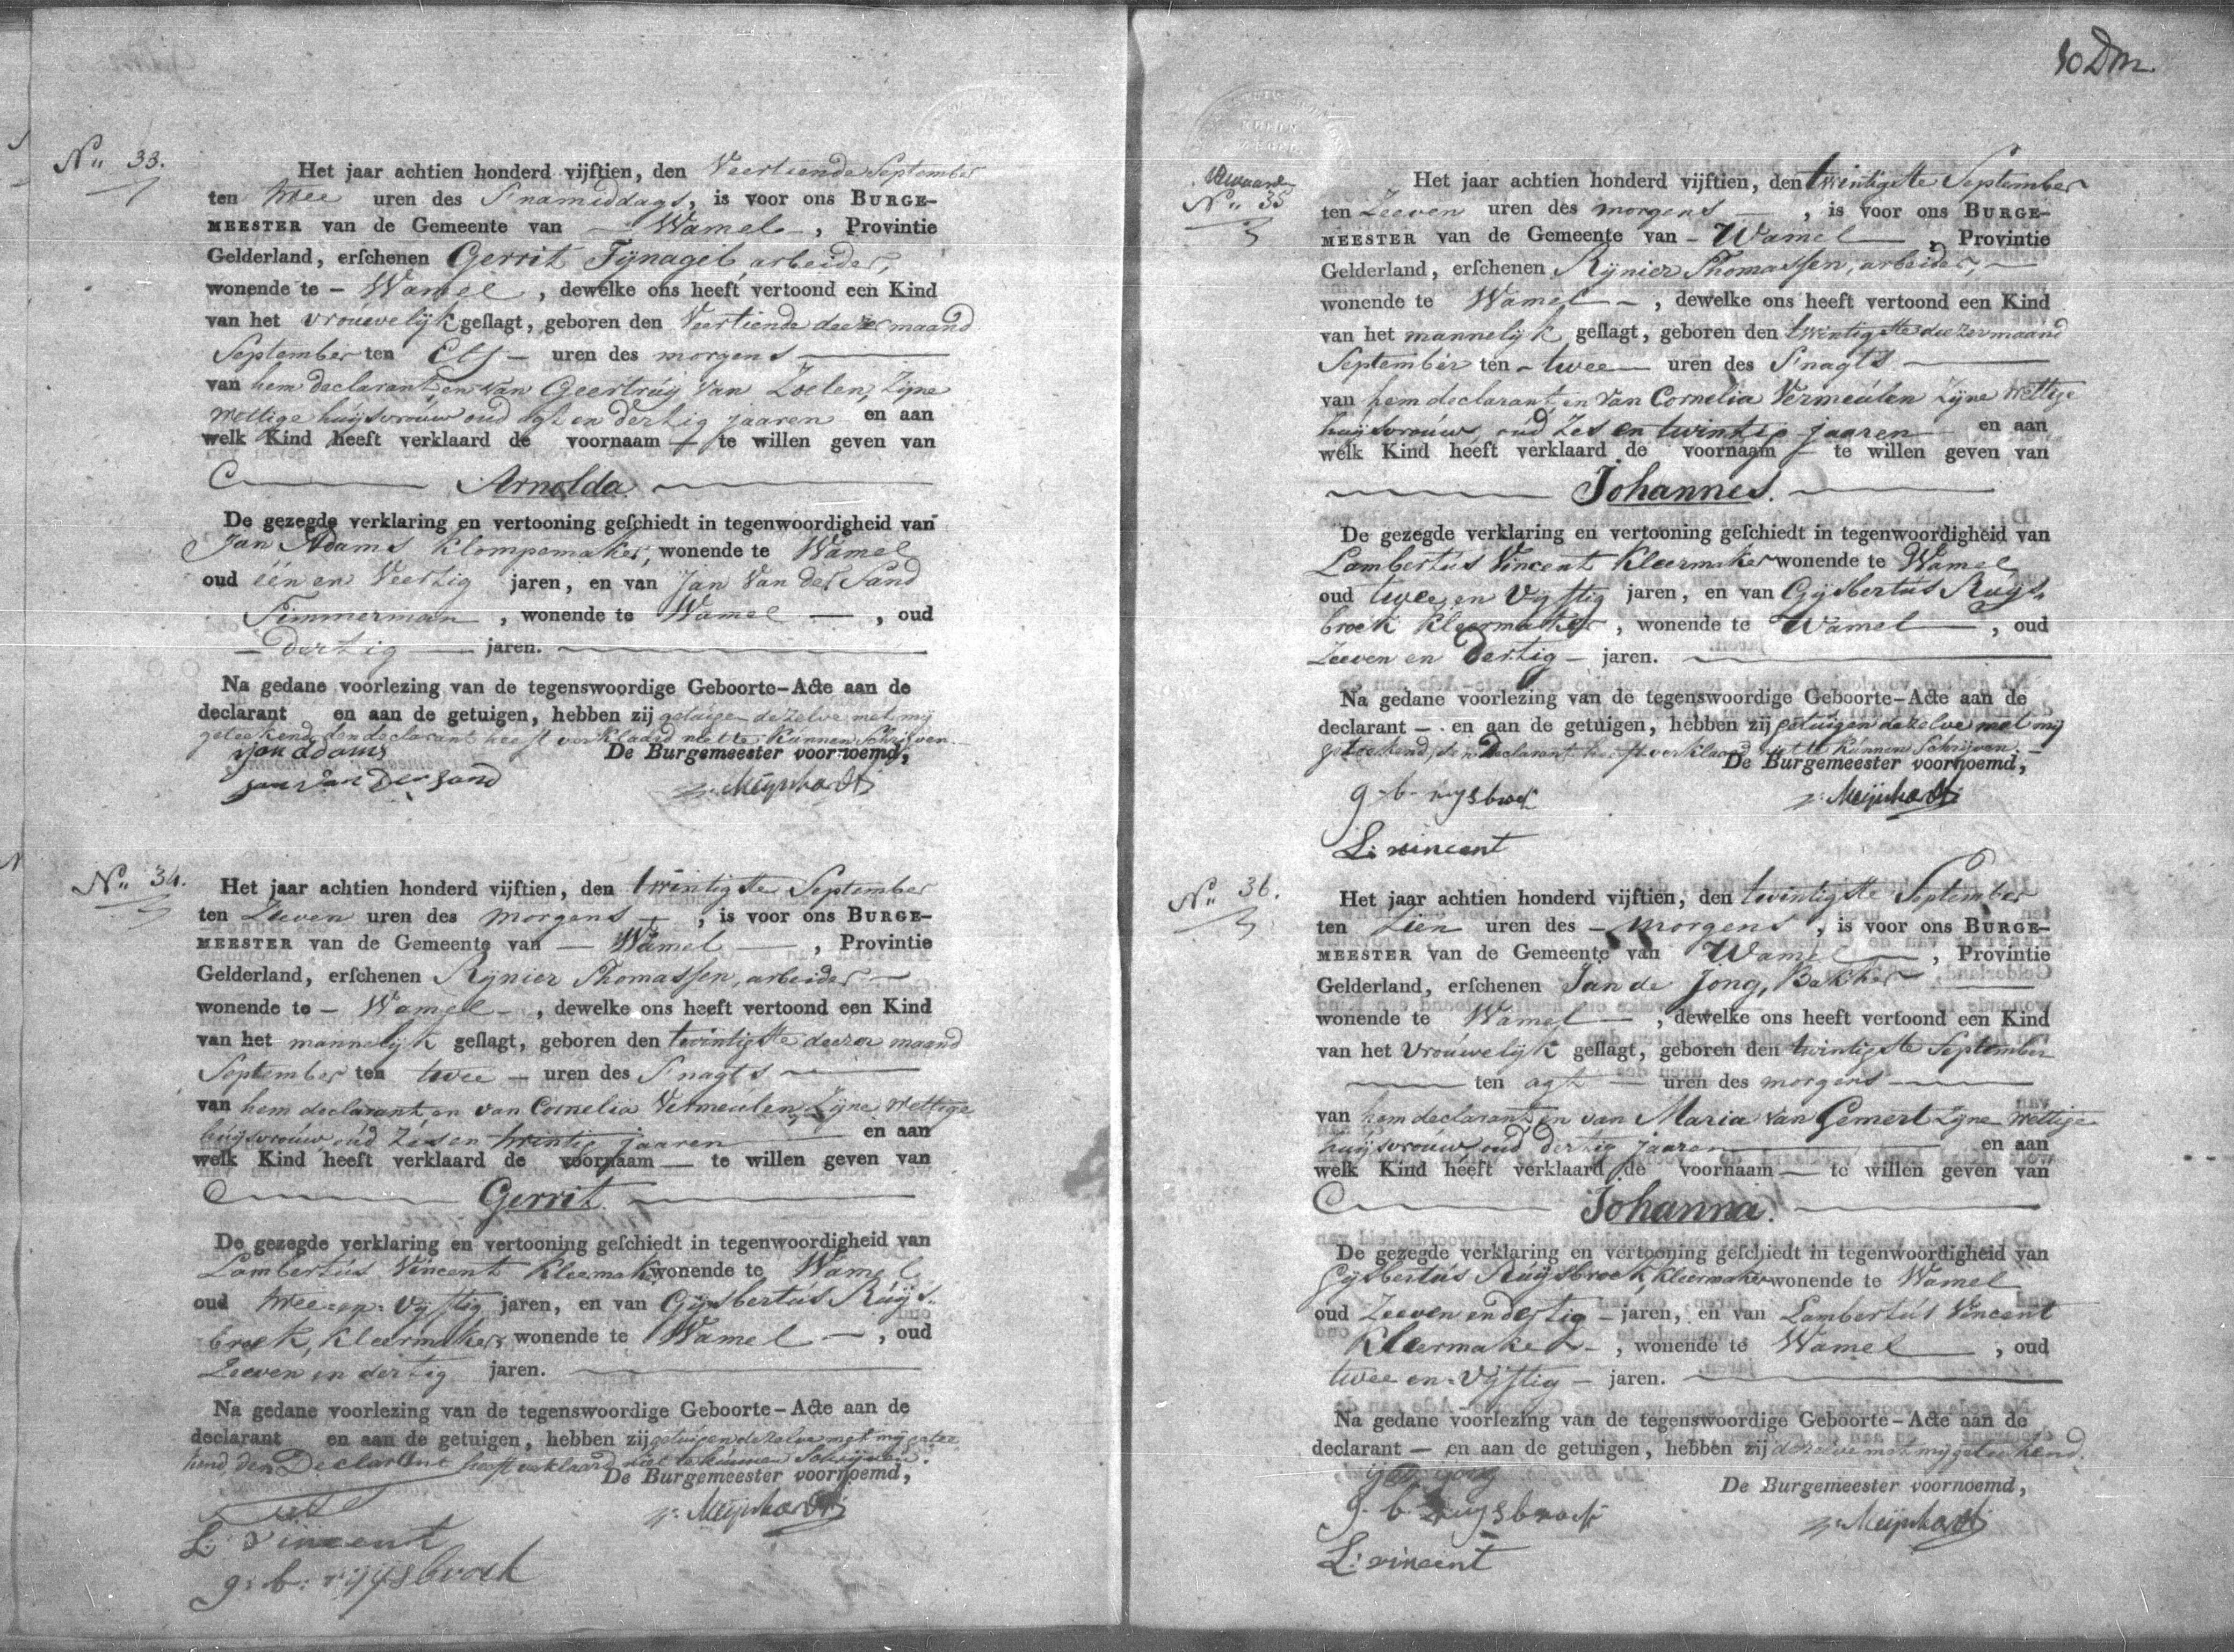 N„ 33.
Het jaar achtien honderd vijftien, den Veertiende September
ten twee uren des S'namiddags, is voor ons BURGE-
MEESTER van de Gemeente van — Wamel —, Provintie
Gelderland, erſchenen Gerrit Fijnagel, arbeider,
wonende te – Wamel, dewelke ons heeft vertoond een Kind
van het vrouwelijk geſlagt, geboren den Veertiende deezer maand
September ten Elf — uren des morgens —
van hem declarant, en van Geertruij van Zoelen, Zijne
Wettige huijsvrouw oud agt en dertig jaaren en aan
welk Kind heeft verklaard de voornaam — te willen geven van
Arnolda.
De gezegde verklaring en vertooning geſchiedt in tegenwoordigheid van
Jan Adams Klompemaker, wonende te Wamel
oud één en Veertig jaren, en van Jan Van der Sand
Timmerman, wonende te Wamel —, oud
— dertig — jaren.
Na gedane voorlezing van de tegenswoordige Geboorte-Acte aan de
declarant en aan de getuigen, hebben zij getuigen dezelve met mij
geteekend, den declarant heeft verklaard niet te kunnen Schrijven.
De Burgemeester voornoemd,
jan adams
jan van der sand
Meijnhardt
N„ 34.
Het jaar achtien honderd vijftien, den twintigste September
ten Zeeven uren des morgens —, is voor ons BURGE-
MEESTER van de Gemeente van — Wamel —, Provintie
Gelderland, erſchenen Rijnier Thomassen, arbeider —
wonende te – Wamel –, dewelke ons heeft vertoond een Kind
van het mannelijk geſlagt, geboren den twintigste deezer maand
September ten twee — uren des S'nagts —
van hem declarant en van Cornelia Vermeulen, Zijne Wettige
huijsvrouw, oud Zes en twintig jaaren en aan
welk Kind heeft verklaard de voornaam — te willen geven van
Gerrit.
De gezegde verklaring en vertooning geſchiedt in tegenwoordigheid van
Lambertus Vincent Kleermaker wonende te Wamel
oud twee-en-Vijftig jaren, en van Gijsbertus Ruijs-
broek, Kleermaker, wonende te Wamel —, oud
Zeeven en dertig jaren.
Na gedane voorlezing van de tegenswoordige Geboorte-Acte aan de
declarant en aan de getuigen, hebben zij getuigen dezelve met mij getee-
kend den Declarant heeft verklaard niet te kunnen Schrijven.
De Burgemeester voornoemd,
Meijnhardt
L: vincent
g: b: rijsbroek
10 Dm
Bewaard
N„ 35
Het jaar achtien honderd vijftien, den twintigste September
ten Zeeven uren des morgens —, is voor ons BURGE-
MEESTER van de Gemeente van – Wamel —, Provintie
Gelderland, erſchenen Rijnier Thomassen, arbeider, —
wonende te Wamel –, dewelke ons heeft vertoond een Kind
van het mannelijk geſlagt, geboren den twintigste deezer maand
September ten – twee — uren des S'nagts —
van hem declarant, en van Cornelia Vermeulen Zijne Wettige
huijsvrouw, oud Zes en twintig jaaren — en aan
welk Kind heeft verklaard de voornaam — te willen geven van
Johannes.
De gezegde verklaring en vertooning geſchiedt in tegenwoordigheid van
Lambertus Vincent Kleermaker wonende te Wamel
oud twee en Vijftig jaren, en van Gijsbertus Ruijs-
broek Kleermaker, wonende te Wamel —, oud
Zeeven en dertig — jaren.
Na gedane voorlezing van de tegenswoordige Geboorte-Acte aan de
declarant — en aan de getuigen, hebben zij getuigen dezelve met mij
geteekend, den Declarant heeft verklaard niet te kunnen Schrijven. —
De Burgemeester voornoemd,
g-b-rijsbroek
Meijnhardt
L: vincent
N„ 36.
Het jaar achtien honderd vijftien, den twintigste September
ten Tien uren des – morgens, is voor ons BURGE-
MEESTER van de Gemeente van Wamel —, Provintie
Gelderland, erſchenen Jan de Jong, Bakker —
wonende te Wamel —, dewelke ons heeft vertoond een Kind
van het Vrouwelijk geſlagt, geboren den twintigste September
— ten agt — uren des morgens —
van hem declarant, en van Maria van Gemert Zijne Wettige
huijsvrouw, oud dertig jaaren — en aan
welk Kind heeft verklaard de voornaam — te willen geven van
Johanna.
De gezegde verklaring en vertooning geſchiedt in tegenwoordigheid van
Gijsbertus Ruijsbroek, Kleermaker wonende te Wamel
oud Zeeven en dertig – jaren, en van Lambertus Vincent
Kleermaker –, wonende te Wamel —, oud
twee en-Vijftig – jaren.
Na gedane voorlezing van de tegenswoordige Geboorte-Acte aan de
declarant — en aan de getuigen, hebben zij dezelve met mij geteekend.
De Burgemeester voornoemd,
g. b. ruijsbroek
Meijnhardt
L: vincent